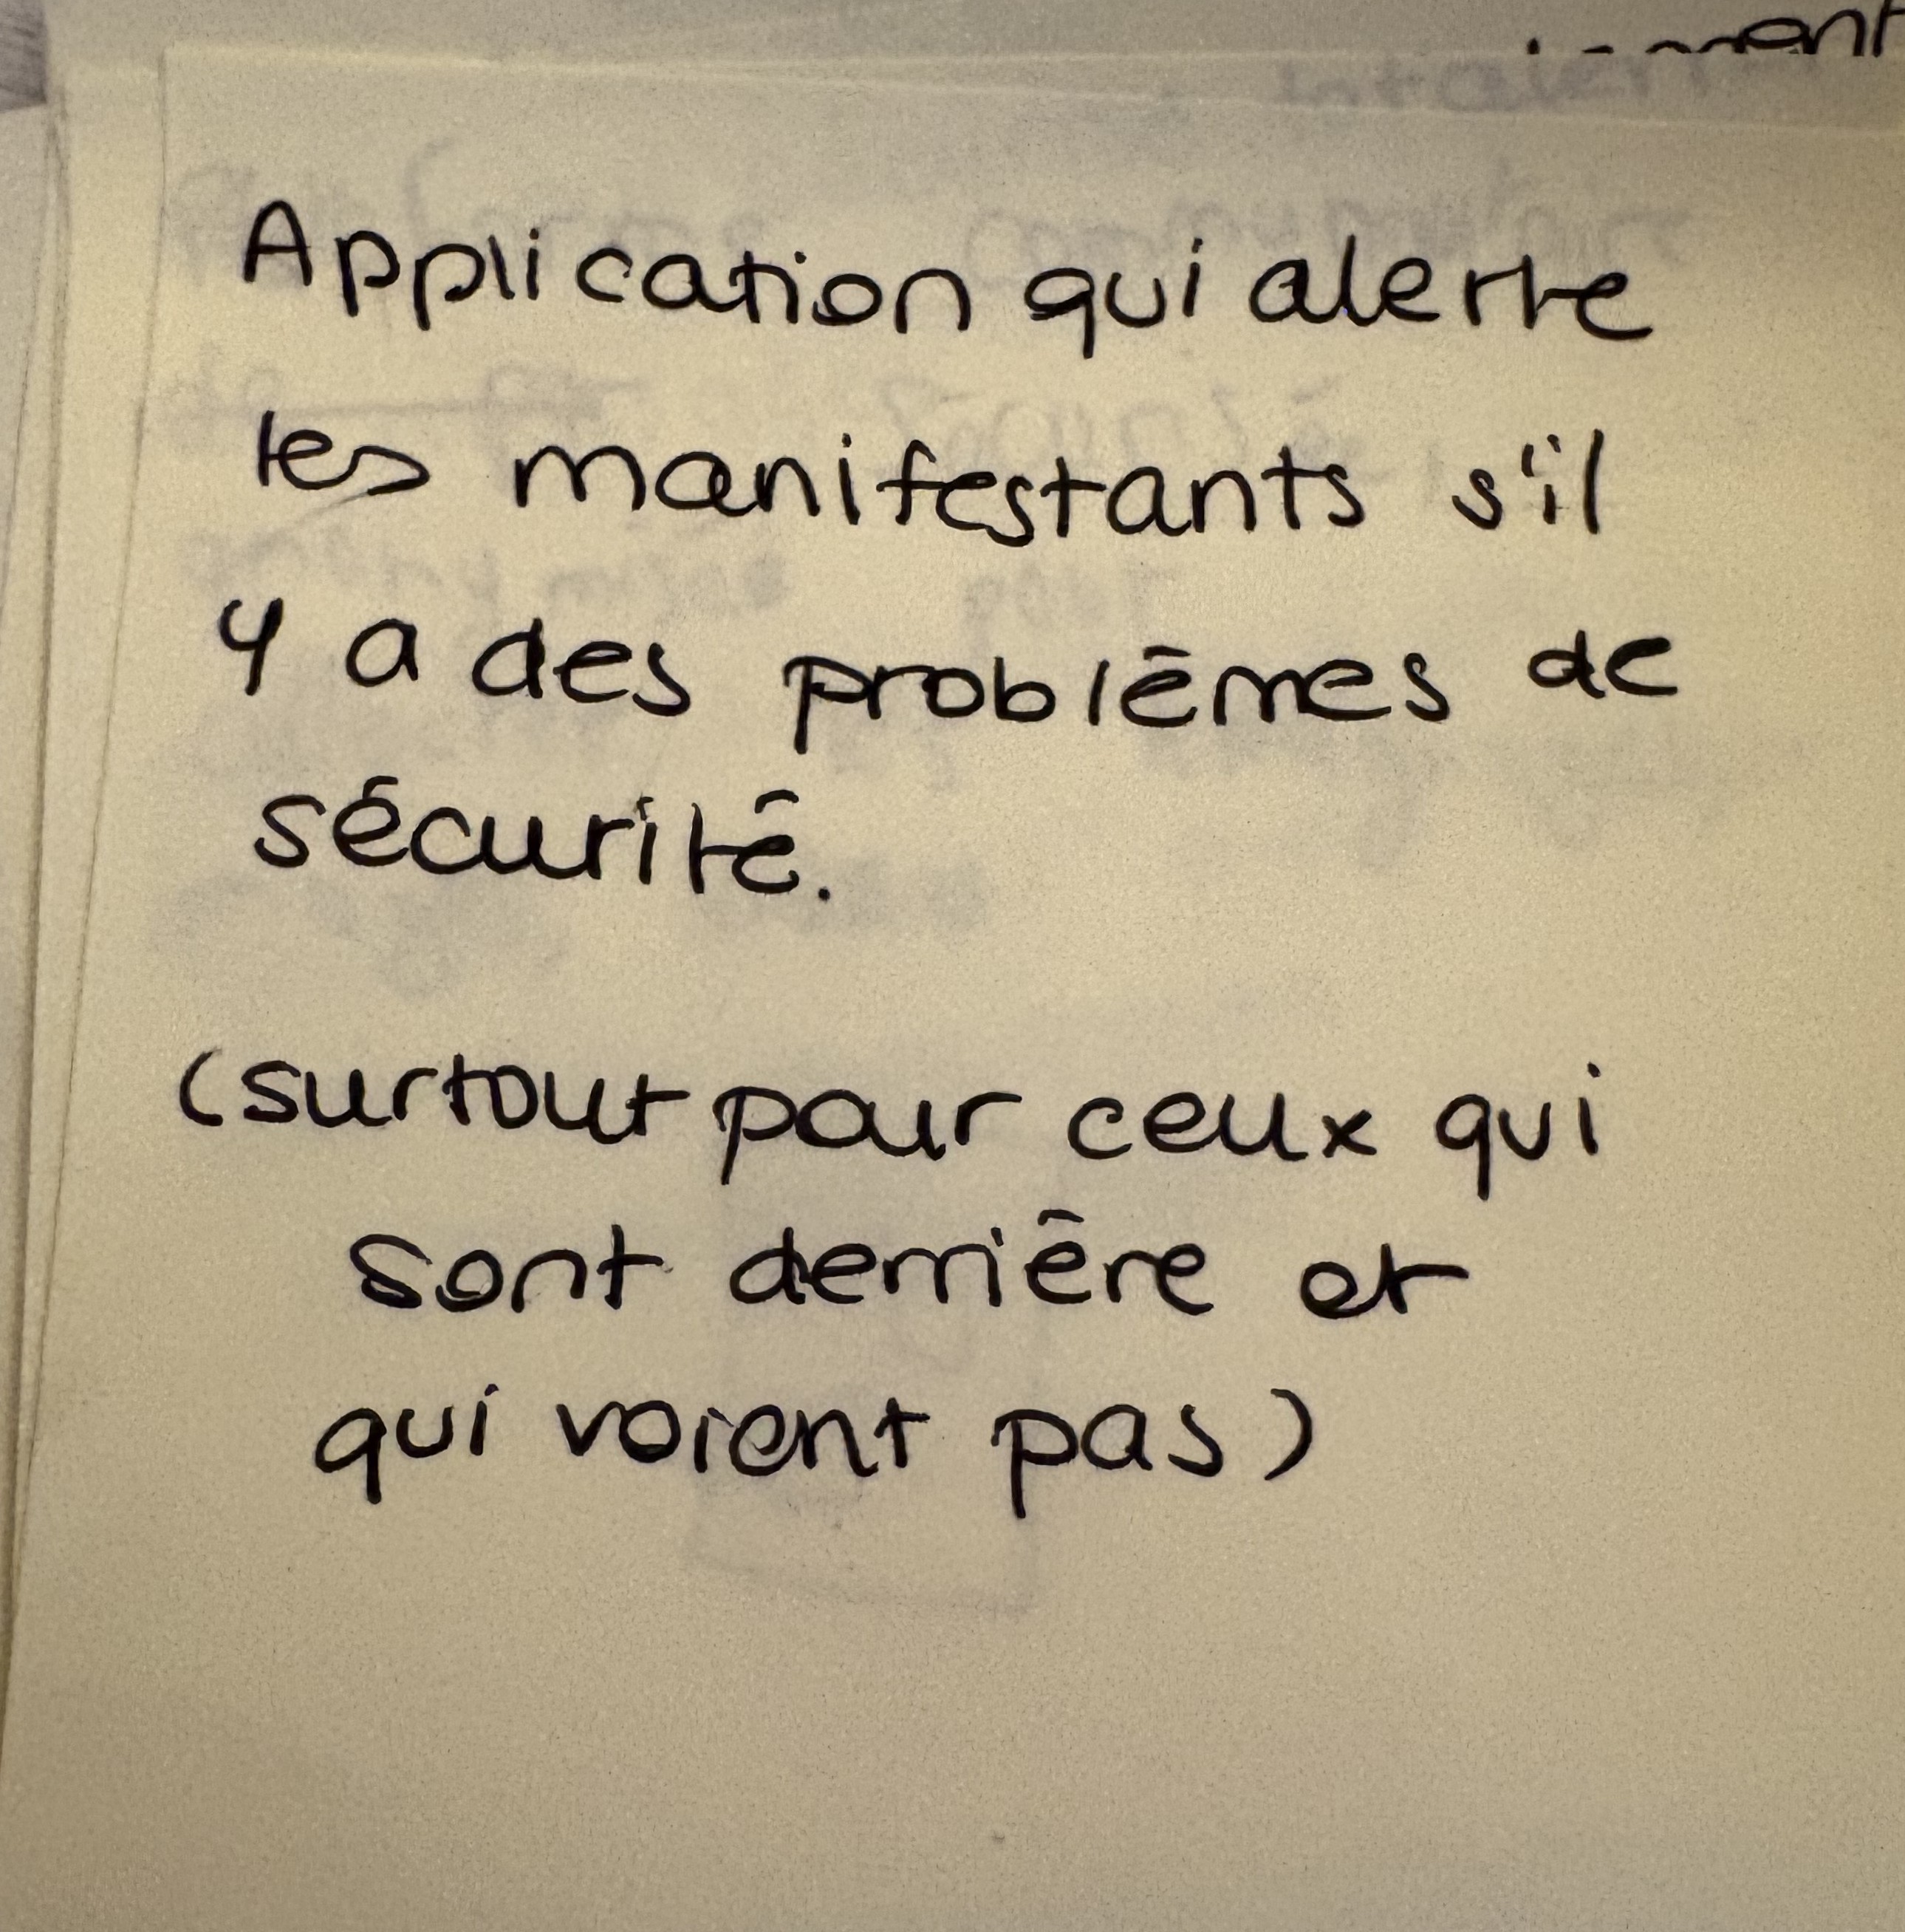 Application qui alerte
les manifestants s'il
y a des problèmes de
sécurité.
(surtout pour ceux qui
sont derrière et
qui voient pas)